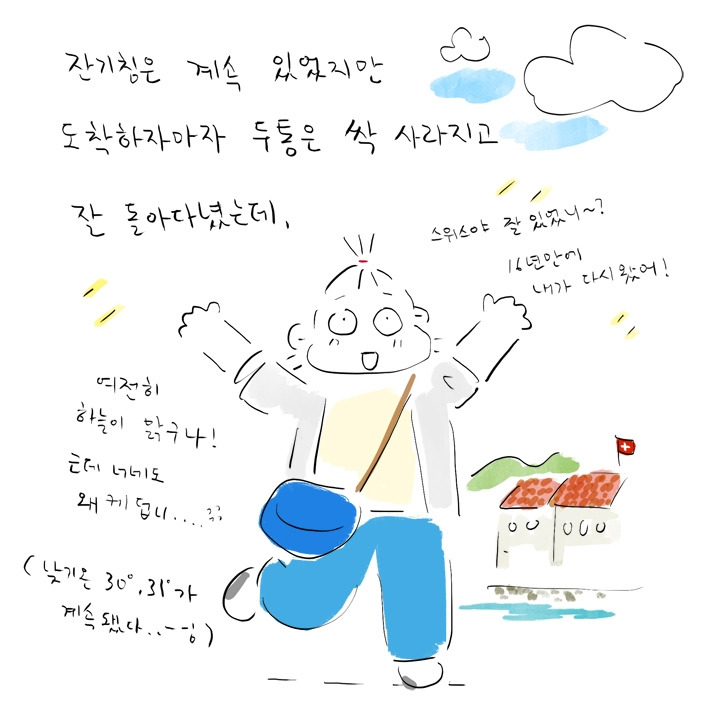 잔기침은 계속 있었지만
도착하자마자 두통은 싹 사라지고
잘 돌아다녔는데,
스위스야 잘 있었니~?
16년만에
내가 다시 왔어!
여전히
하늘이 맑구나!
근데 너네도
왜케 덥니....ㄲㄲ
(낮기온 30°, 31°가
계속됐다..--;;)